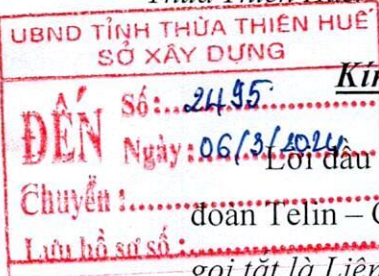 Thừa Thiên Huế
UBND TỈNH THỪA THIÊN HUẾ
SỞ XÂY DỰNG
ĐẾN Số: 2495
Ngày: 06/3/2024
Chuyển:
Lưu hồ sơ số:
Lời đầu
đoàn Telin –
gọi tắt là Liên